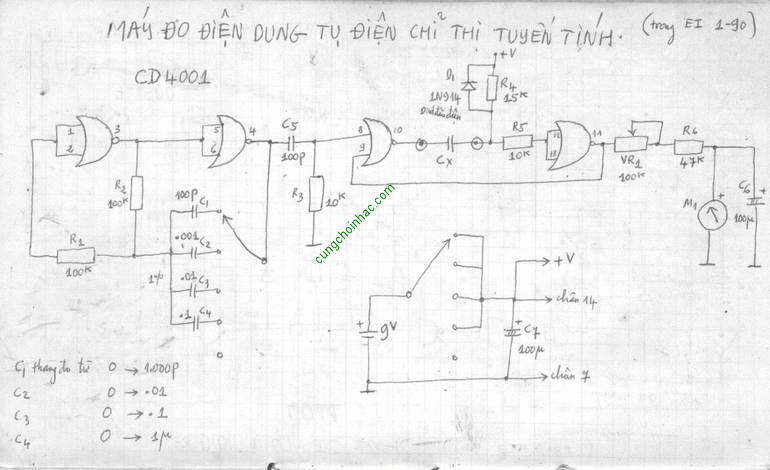 MÁY ĐO ĐIỆN DUNG TỤ ĐIỆN CHỈ THỊ TUYẾN TÍNH. (trong EI 1-90)
CD4001
+V
D1
1N914
R4
15K
1
2
3
5
6
4
C5
100p
8
9
10
Cx
R5
10K
12
13
11
VR1
100K
R6
47K
R2
100K
R3
10K
M1
C6
+
100µ
R1
100K
100p
C1
.001
C2
1%
.01
C3
.1
C4
cungchoinhac.com
+
9V
+V
chân 14
+
C7
100µ
chân 7
C1 thang đo từ 0 → 1.000p
C2 0 → .01
C3 0 → .1
C4 0 → 1µ